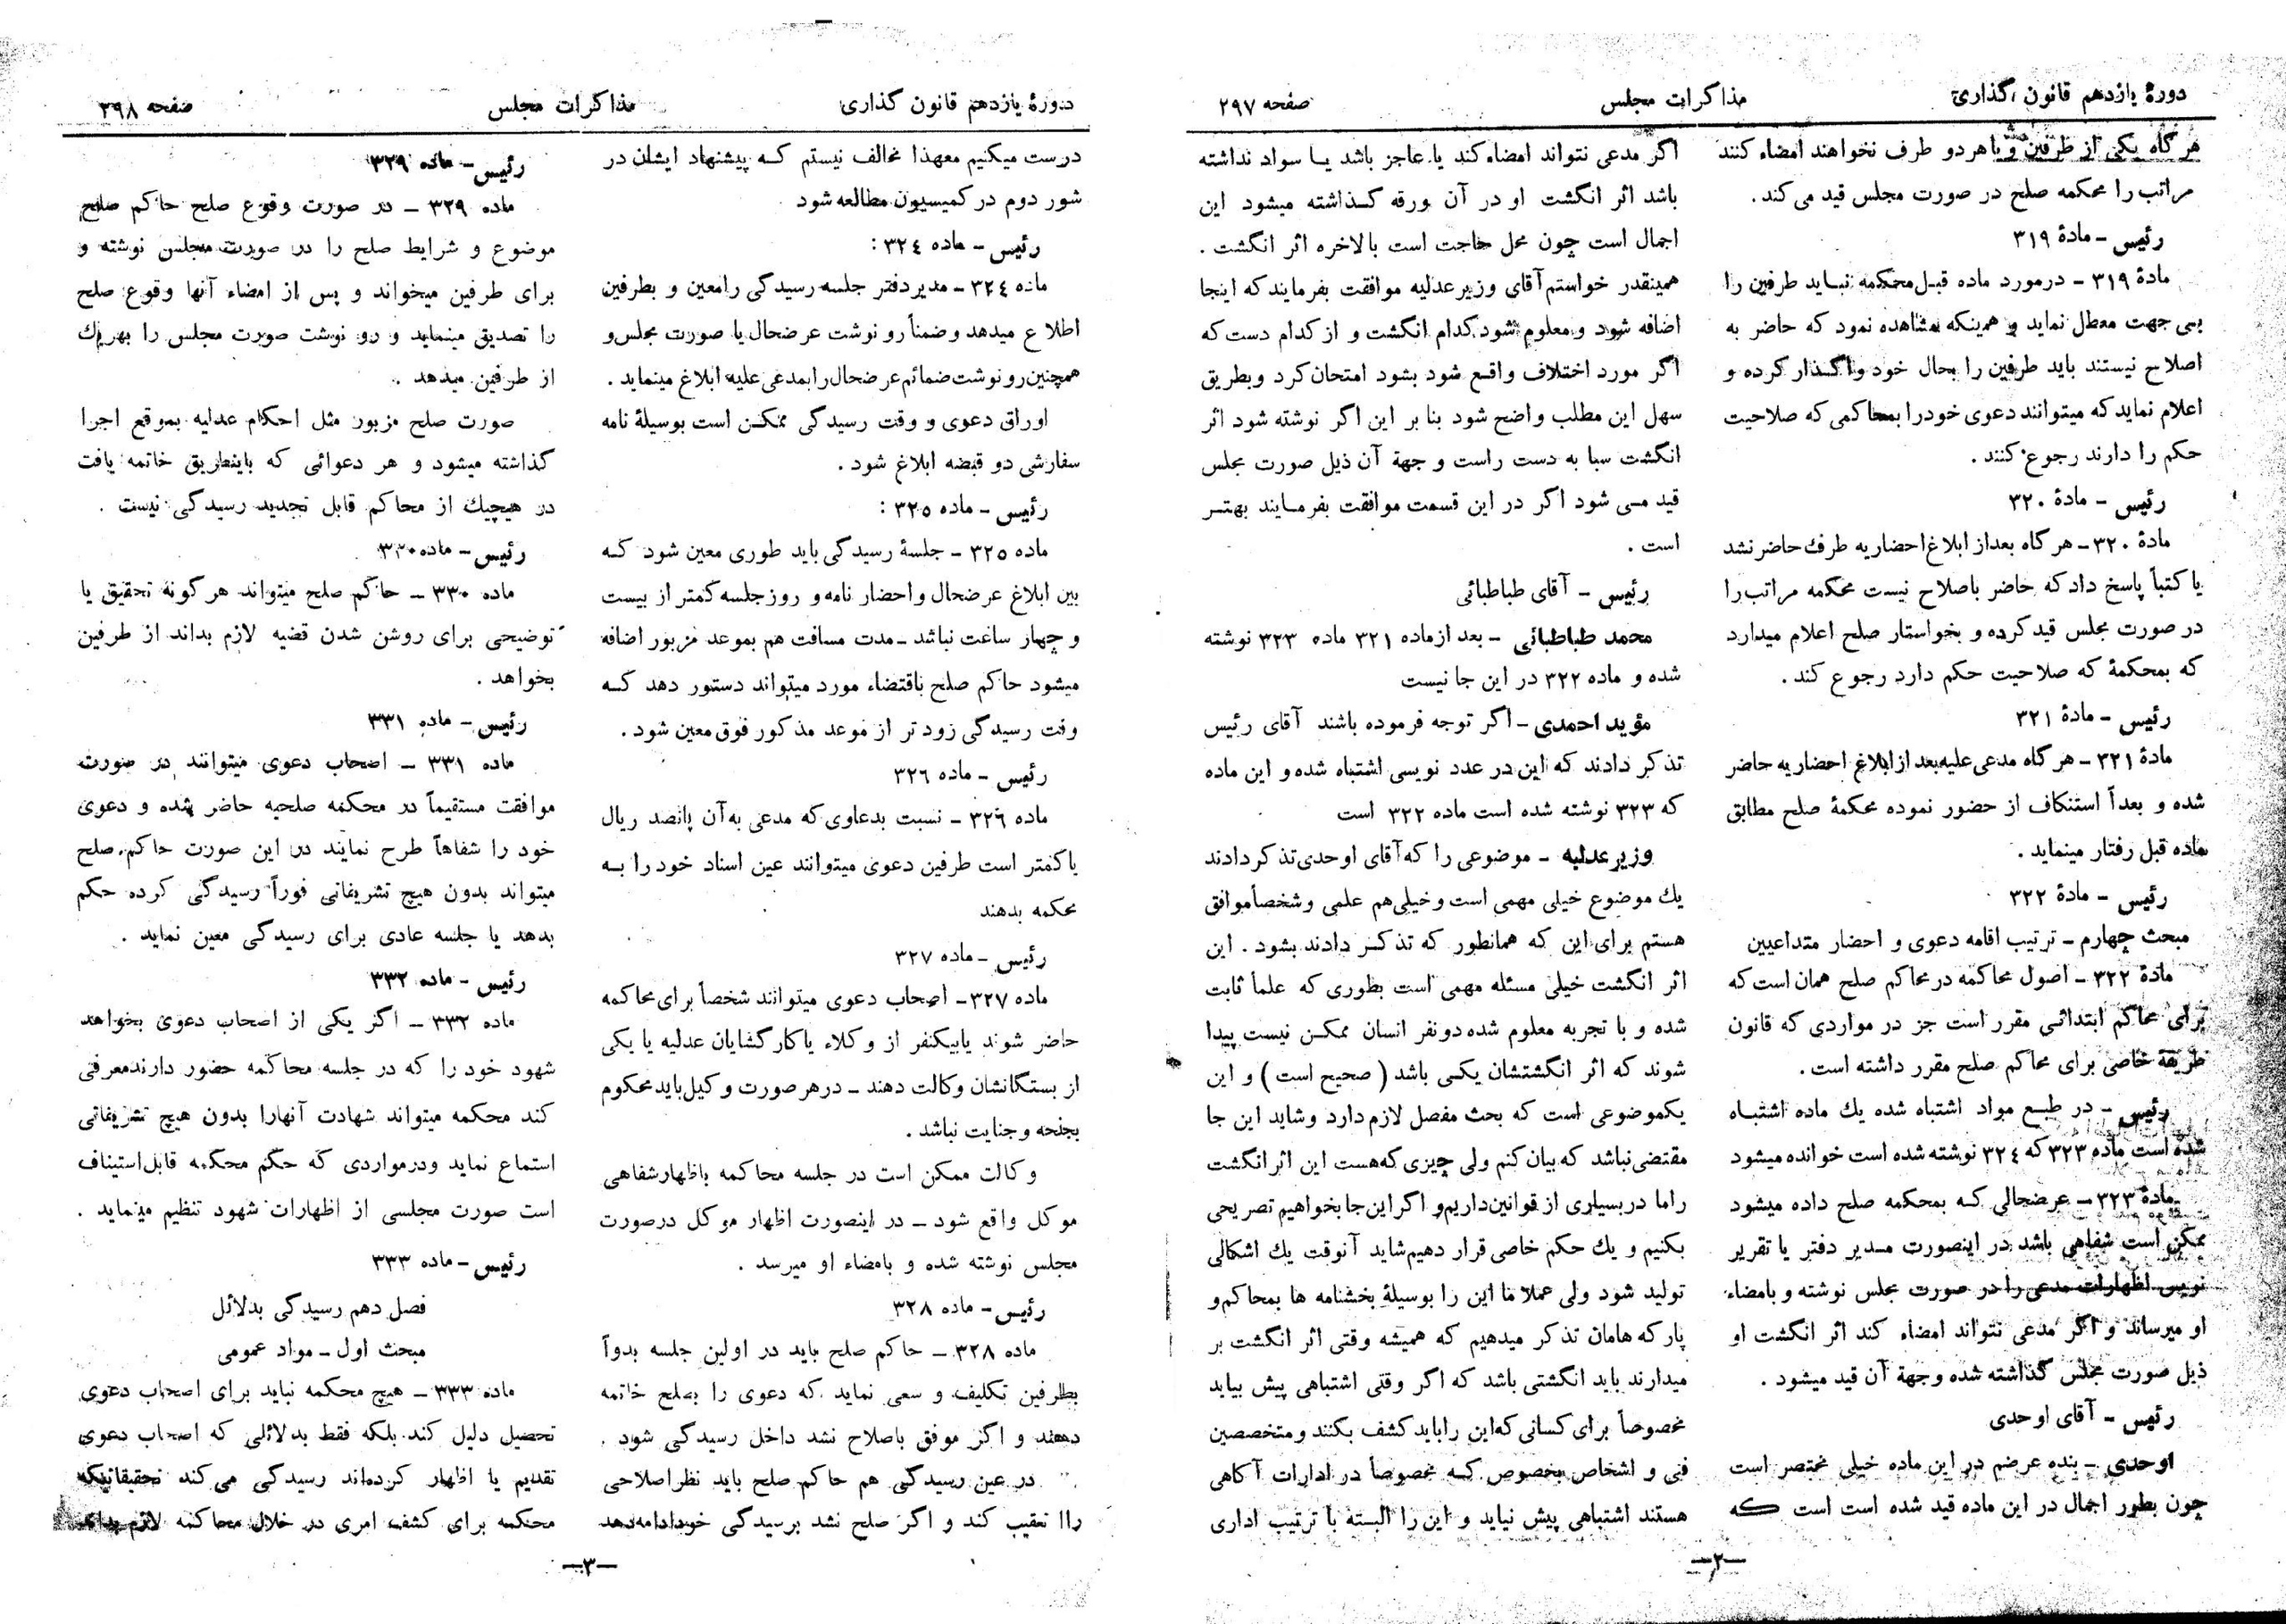 دورهٔ یازدهم قانون گذاری
مذاکرات مجلس
صفحه ۲۹۷
هرگاه یکی از طرفین و یا هردو طرف نخواهند امضاء کنند
مراتب را محکمه صلح در صورت مجلس قید می‌کند .
رئیس – مادهٔ ۳۱۹
مادهٔ ۳۱۹ – درمورد ماده قبل محکمه نباید طرفین را
بی جهت معطل نماید و همینکه مشاهده نمود که حاضر به
اصلاح نیستند باید طرفین را بحال خود واگذار کرده و
اعلام نماید که میتوانند دعوی خودرا بمحاکمی که صلاحیت
حکم را دارند رجوع کنند .
رئیس – مادهٔ ۳۲۰
مادهٔ ۳۲۰ – هرگاه بعداز ابلاغ احضاریه طرف حاضر نشد
یا کتباً پاسخ داد که حاضر باصلاح نیست محکمه مراتب را
در صورت مجلس قید کرده و بخواستار صلح اعلام میدارد
که بمحکمهٔ که صلاحیت حکم دارد رجوع کند .
رئیس – مادهٔ ۳۲۱
مادهٔ ۳۲۱ – هرگاه مدعی علیه بعد از ابلاغ احضاریه حاضر
شده و بعداً استنکاف از حضور نموده محکمهٔ صلح مطابق
ماده قبل رفتار مینماید .
رئیس – مادهٔ ۳۲۲
مبحث چهارم – ترتیب اقامه دعوی و احضار متداعیین
مادهٔ ۳۲۲ – اصول محاکمه در محاکم صلح همان است که
برای محاکم ابتدائی مقرر است جز در مواردی که قانون
طریقهٔ خاصی برای محاکم صلح مقرر داشته است .
رئیس – در طبع مواد اشتباه شده یك ماده اشتباه
شده است ماده ۳۲۳ که ۳۲٤ نوشته شده است خوانده میشود
مادهٔ ۳۲۳ – عرضحالی که بمحکمه صلح داده میشود
ممکن است شفاهی باشد در اینصورت مدیر دفتر یا تقریر
نویس اظهارات مدعی را در صورت مجلس نوشته و بامضاء
او میرساند و اگر مدعی نتواند امضاء کند اثر انگشت او
ذیل صورت مجلس گذاشته شده وجههٔ آن قید میشود .
رئیس – آقای اوحدی
اوحدی – بنده عرضم در این ماده خیلی مختصر است
چون بطور اجمال در این ماده قید شده است است که
اگر مدعی نتواند امضاء کند یا عاجز باشد یا سواد نداشته
باشد اثر انگشت او در آن ورقه گذاشته میشود این
اجمال است چون محل حاجت است بالاخره اثر انگشت .
همینقدر خواستم آقای وزیر عدلیه موافقت بفرمایند که اینجا
اضافه شود و معلوم شود کدام انگشت و از کدام دست که
اگر مورد اختلاف واقع شود بشود امتحان کرد وبطریق
سهل این مطلب واضح شود بنا بر این اگر نوشته شود اثر
انگشت سبا به دست راست و جهة آن ذیل صورت مجلس
قید می شود اگر در این قسمت موافقت بفرمایند بهتر
است .
رئیس – آقای طباطبائی
محمد طباطبائی – بعد از ماده ۳۲۱ ماده ۳۲۳ نوشته
شده و ماده ۳۲۲ در این جا نیست
مؤید احمدی – اگر توجه فرموده باشند آقای رئیس
تذکر دادند که این در عدد نویسی اشتباه شده و این ماده
که ۳۲۳ نوشته شده است ماده ۳۲۲ است
وزیر عدلیه – موضوعی را که آقای اوحدی تذکر دادند
یك موضوع خیلی مهمی است و خیلی هم علمی و شخصاً موافق
هستم برای این که همانطور که تذکر دادند بشود . این
اثر انگشت خیلی مسئله مهمی است بطوری که علماً ثابت
شده و با تجربه معلوم شده دونفر انسان ممکن نیست پیدا
شوند که اثر انگشتشان یکی باشد ( صحیح است ) و این
یکموضوعی است که بحث مفصل لازم دارد و شاید این جا
مقتضی نباشد که بیان کنم ولی چیزی که هست این اثر انگشت
راما در بسیاری از قوانین داریم و اگر این جا بخواهیم تصریحی
بکنیم و یك حکم خاصی قرار دهیم شاید آنوقت یك اشکالی
تولید شود ولی عملا ما این را بوسیلهٔ بخشنامه ها بمحاکم و
پارکه هامان تذکر میدهیم که همیشه وقتی اثر انگشت بر
میدارند باید انگشتی باشد که اگر وقتی اشتباهی پیش بیاید
مخصوصاً برای کسانی که این را باید کشف بکنند و متخصصین
فنی و اشخاص بخصوص که مخصوصاً در ادارات آگاهی
هستند اشتباهی پیش نیاید و این را البته با ترتیب اداری
–۲–
دورهٔ یازدهم قانون گذاری
مذاکرات مجلس
صفحه ۲۹۸
درست میکنیم معهذا مخالف نیستم که پیشنهاد ایشان در
شور دوم در کمیسیون مطالعه شود
رئیس – ماده ۳۲٤ :
ماده ۳۲٤ – مدیر دفتر جلسه رسیدگی را معین و بطرفین
اطلاع میدهد و ضمناً رونوشت عرضحال یا صورت مجلس و
همچنین رونوشت ضمائم عرضحال را بمدعی علیه ابلاغ مینماید .
اوراق دعوی و وقت رسیدگی ممکن است بوسیلهٔ نامه
سفارشی دو قبضه ابلاغ شود .
رئیس – ماده ۳۲۵ :
ماده ۳۲۵ – جلسهٔ رسیدگی باید طوری معین شود که
بین ابلاغ عرضحال و احضار نامه و روز جلسه کمتر از بیست
و چهار ساعت نباشد – مدت مسافت هم بموعد مزبور اضافه
میشود حاکم صلح باقتضاء مورد میتواند دستور دهد که
وقت رسیدگی زود تر از موعد مذکور فوق معین شود .
رئیس – ماده ۳۲٦
ماده ۳۲٦ – نسبت بدعاوی که مدعی به آن پانصد ریال
یا کمتر است طرفین دعوی میتوانند عین اسناد خود را به
محکمه بدهند
رئیس – ماده ۳۲۷
ماده ۳۲۷ – اصحاب دعوی میتوانند شخصاً برای محاکمه
حاضر شوند یابیکنفر از وکلاء یا کارگشایان عدلیه یا یکی
از بستگانشان وکالت دهند – در هر صورت وکیل باید محکوم
بجنحه و جنایت نباشد .
وکالت ممکن است در جلسه محاکمه باظهار شفاهی
موکل واقع شود – در اینصورت اظهار موکل در صورت
مجلس نوشته شده و بامضاء او میرسد .
رئیس – ماده ۳۲۸
ماده ۳۲۸ – حاکم صلح باید در اولین جلسه بدواً
بطرفین تکلیف و سعی نماید که دعوی را بصلح خاتمه
دهند و اگر موفق باصلاح نشد داخل رسیدگی شود .
در عین رسیدگی هم حاکم صلح باید نظر اصلاحی
راا تعقیب کند و اگر صلح نشد برسیدگی خود ادامه دهد
رئیس – ماده ۳۲۹
ماده ۳۲۹ – در صورت وقوع صلح حاکم صلح
موضوع و شرایط صلح را در صورت مجلس نوشته و
برای طرفین میخواند و پس از امضاء آنها وقوع صلح
را تصدیق مینماید و رو نوشت صورت مجلس را بهریك
از طرفین میدهد .
صورت صلح مزبور مثل احکام عدلیه بموقع اجرا
گذاشته میشود و هر دعوائی که باینطریق خاتمه یافت
در هیچیك از محاکم قابل تجدید رسیدگی نیست .
رئیس – ماده ۳۳۰
ماده ۳۳۰ – حاکم صلح میتواند هر گونه تحقیق یا
توضیحی برای روشن شدن قضیه لازم بداند از طرفین
بخواهد .
رئیس – ماده ۳۳۱
ماده ۳۳۱ – اصحاب دعوی میتوانند در صورت
موافقت مستقیماً در محکمه صلحیه حاضر شده و دعوی
خود را شفاهاً طرح نمایند در این صورت حاکم صلح
میتواند بدون هیچ تشریفاتی فوراً رسیدگی کرده حکم
بدهد یا جلسه عادی برای رسیدگی معین نماید .
رئیس – ماده ۳۳۲
ماده ۳۳۲ – اگر یکی از اصحاب دعوی بخواهد
شهود خود را که در جلسه محاکمه حضور دارند معرفی
کند محکمه میتواند شهادت آنهارا بدون هیچ تشریفاتی
استماع نماید و در مواردی که حکم محکمه قابل استیناف
است صورت مجلسی از اظهارات شهود تنظیم مینماید .
رئیس – ماده ۳۳۳
فصل دهم رسیدگی بدلائل
مبحث اول – مواد عمومی
ماده ۳۳۳ – هیچ محکمه نباید برای اصحاب دعوی
تحصیل دلیل کند بلکه فقط بدلائلی که اصحاب دعوی
تقدیم یا اظهار کرده‌اند رسیدگی می‌کند تحقیقاتیکه
محکمه برای کشف امری در خلال محاکمه لازم بداند
–۳–